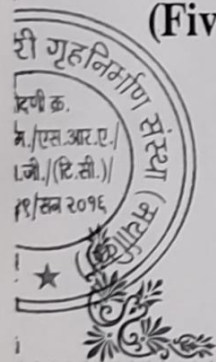 (Fiv
री गृहनिर्माण संस्था (मर्यादि
दणी क्र.
म./एस.आर.ए./
.जी./(टि.सी.)/
१९/सन २०१६